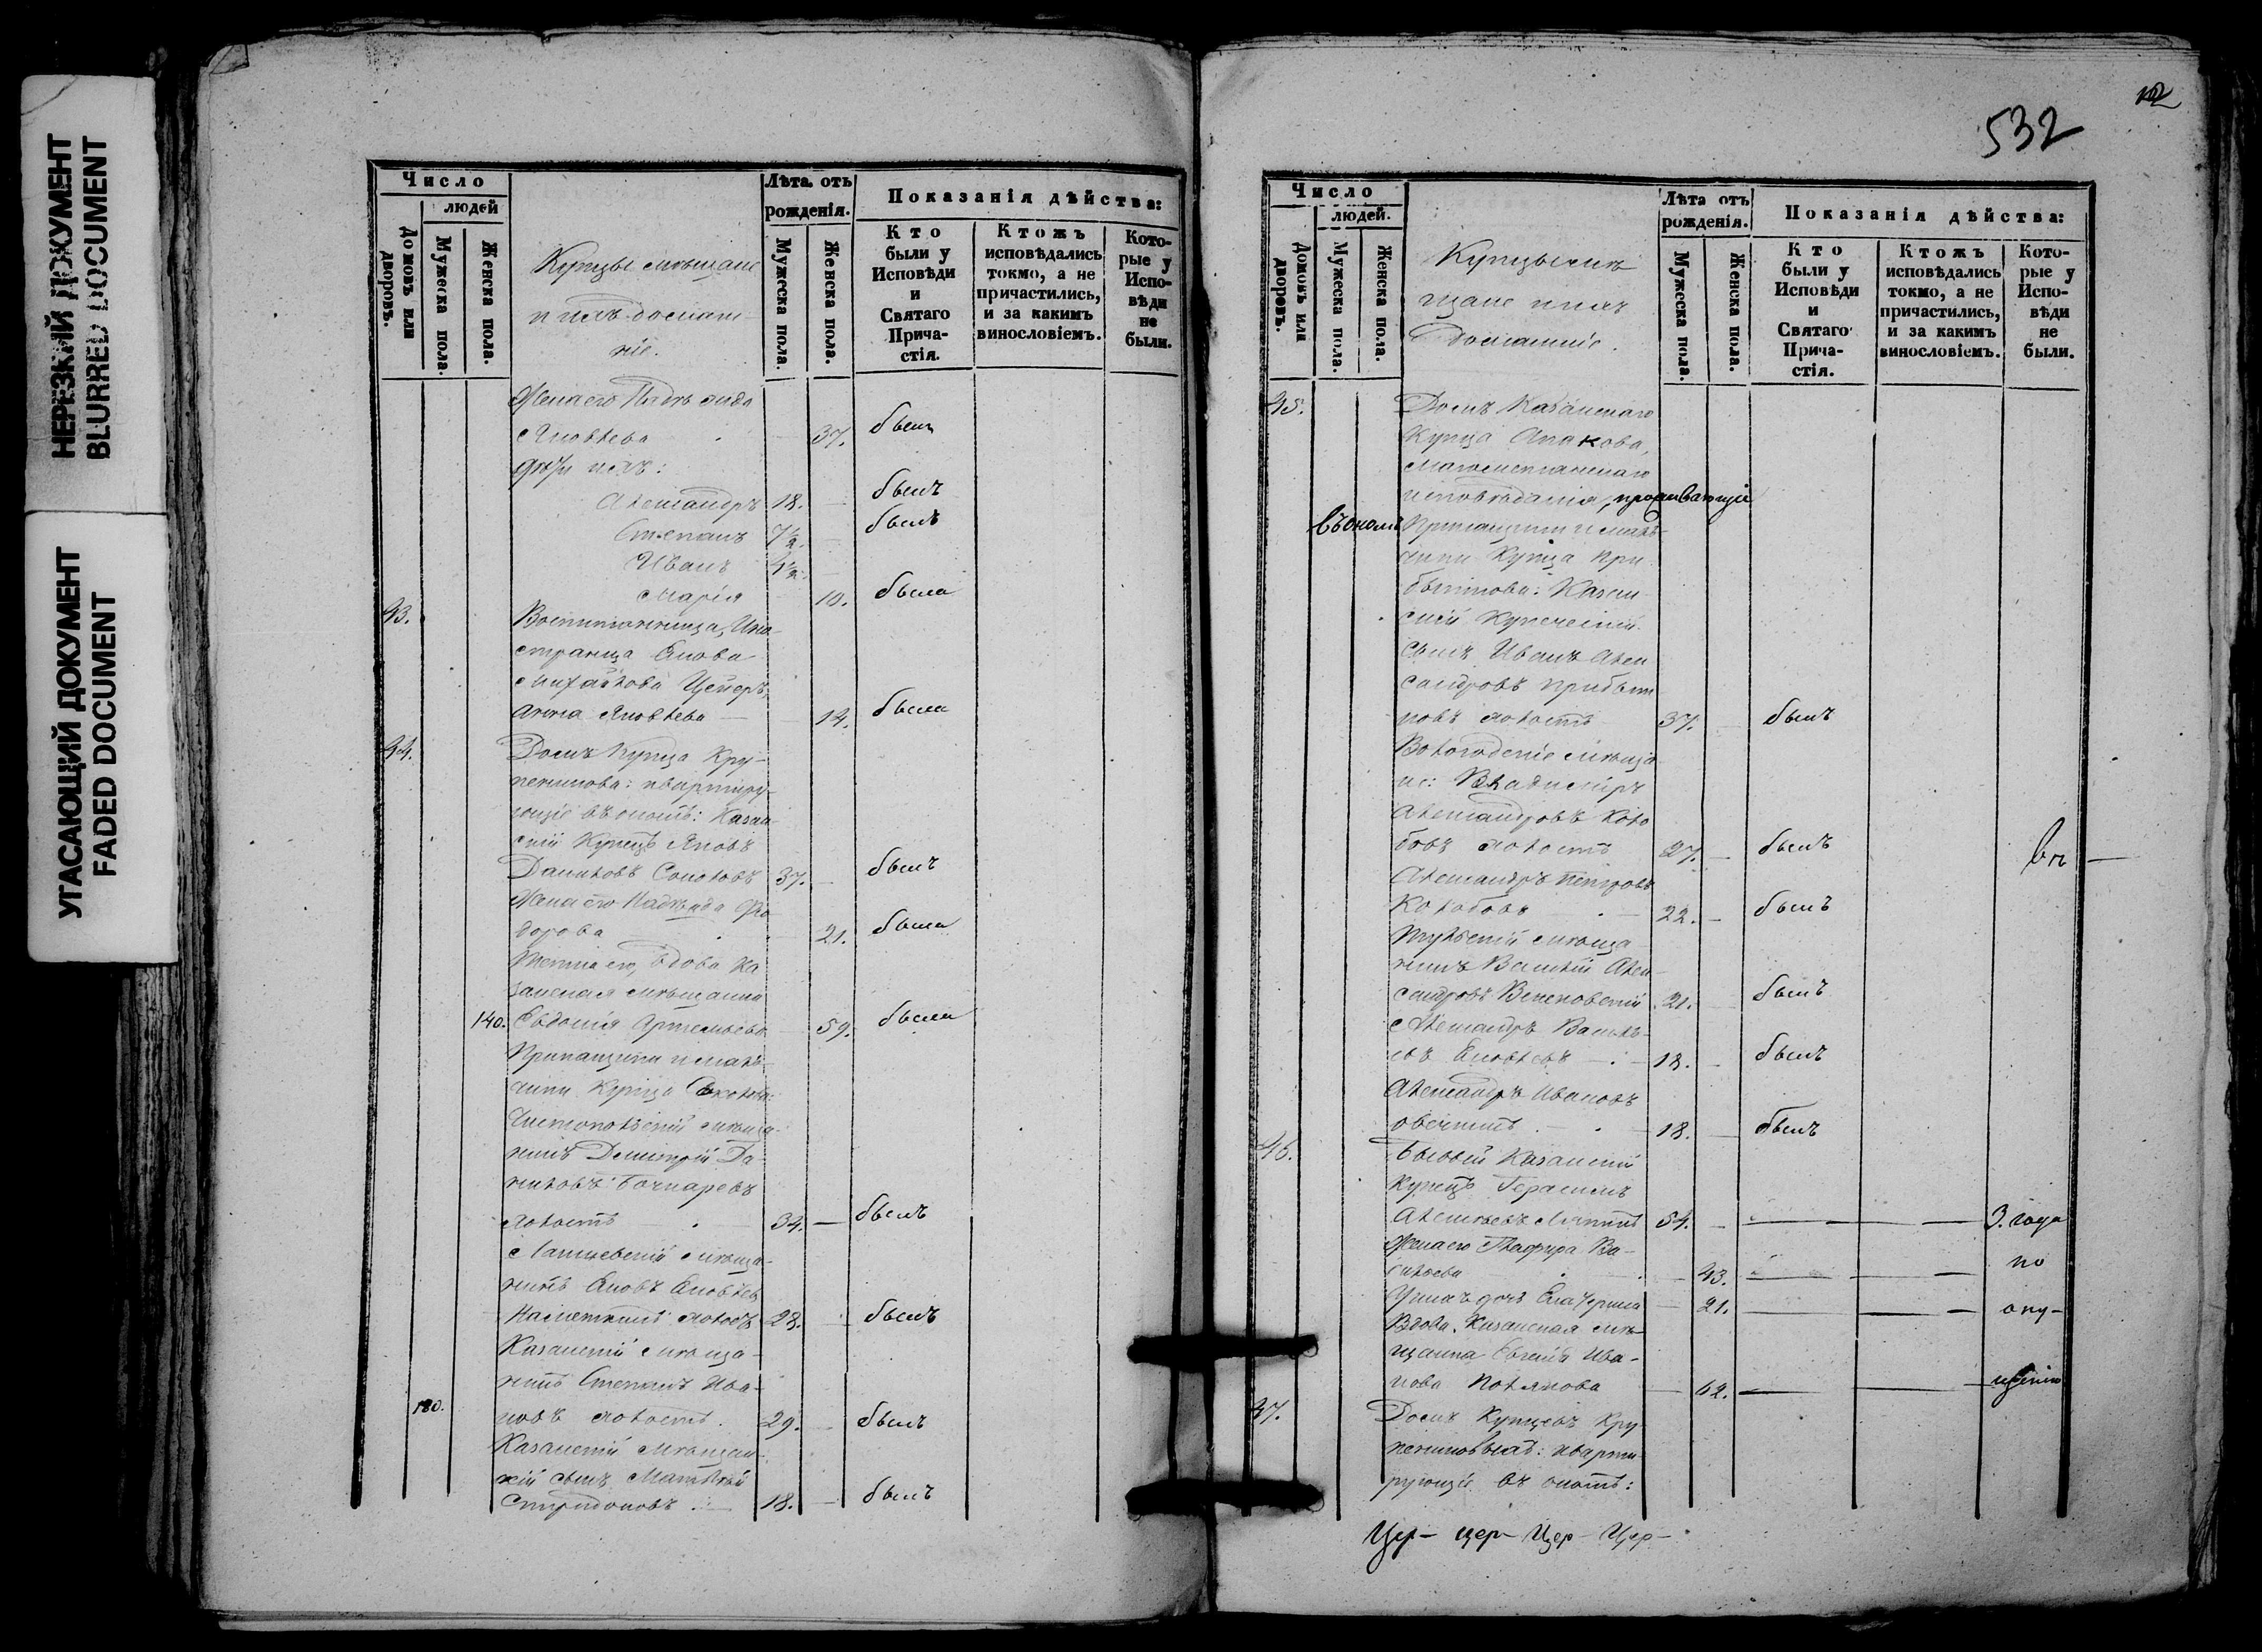 НЕРЕЗКИЙ ДОКУМЕНТ
BLURRED DOCUMENT
УГАСАЮЩИЙ ДОКУМЕНТ
FADED DOCUMENT
Число
людей
Домовъ или дворовъ.
Мужеска пола.
Женска пола.
Купцы мѣщане
и ихъ домаш-
ніе.
Лѣта отъ
рожденія.
Мужеска пола.
Женска пола.
Показанія дѣйства:
Кто
были у
Исповѣди
и
Святаго
Прича-
стія.
Ктожъ
исповѣдались
токмо, а не
причастились,
и за какимъ
винословіемъ.
Кото-
рые у
Испо-
вѣди
не
были.
Жена его
Яковлева 37. была
дѣти ихъ:
Александръ 18. былъ
Степанъ 7½ былъ
Иванъ 4½
Марія 10. была
43. Воспитанница, Ино-
странца Якова
Михайлова
Анна Яковлева 14. была
44. Домъ Купца Кру-
пенникова: квартиру-
ющіе въ ономъ: Казан-
скій Купецъ Яковъ
Даниловъ Соколовъ 37. былъ
Жена его Надежда Фео
дорова 21. была
его, вдова Ка
занская мѣщанка
140. Евдокія Артемьева 59. была
Прикащики и маль-
чики Купца Соколова:
Чистопольскій мѣща-
нинъ Димитрій Да-
ниловъ Бочкаревъ
холостъ 34. былъ
мѣща-
нинъ Яковъ Яковлевъ
холостъ 28. былъ
Казанскій мѣща-
нинъ Степанъ Ива-
180. новъ холостъ. 29. былъ
Казанскій мѣщан-
скій сынъ Матвей
Спиридоновъ 18. былъ
532
Число
людей.
Домовъ или дворовъ.
Мужеска пола.
Женска пола.
Купцы мѣ
щане и ихъ
Домашніе.
Лѣта отъ
рожденія.
Мужеска пола.
Женска пола.
Показанія дѣйства:
Кто
были у
Исповѣди
и
Святаго
Прича-
стія.
Ктожъ
исповѣдались
токмо, а не
причастились,
и за какимъ
винословіемъ.
Кото-
рые у
Испо-
вѣди
не
были.
45. Домъ Казанскаго
Купца Апакова,
Магометанскаго
исповѣданія, проживающіе
въ ономъ Прикащики и маль-
чики Купца При
быткова: Казан
скій Купеческій
сынъ Иванъ Алек
сандровъ Прибыт
ковъ холостъ 37. былъ
Вологодскіе мѣща
не: Владиміръ
Александровъ Коло
бовъ холостъ 27. былъ
Александръ Петровъ
Колобовъ 22. былъ
Тульскій мѣща
нинъ Василій Алек
сандровъ 21. былъ
Александръ Василь
евъ Яковлевъ 18. былъ
Александръ Ивановъ
Овечкинъ 18. былъ
46. Бывшій Казанскій
Купецъ Герасимъ
Алексѣевъ 54. 3. года
Жена его Глафира Ва-
сильева 43. по
У нихъ дочь Екатерина 21. опу-
Вдова, Казанская мѣ
щанка Евгенія Ива-
нова 62. щенію
47. Домъ Купцевъ Кру
пенниковыхъ: кварти
рующіе въ ономъ:
Цер- цер- Цер- Цер-